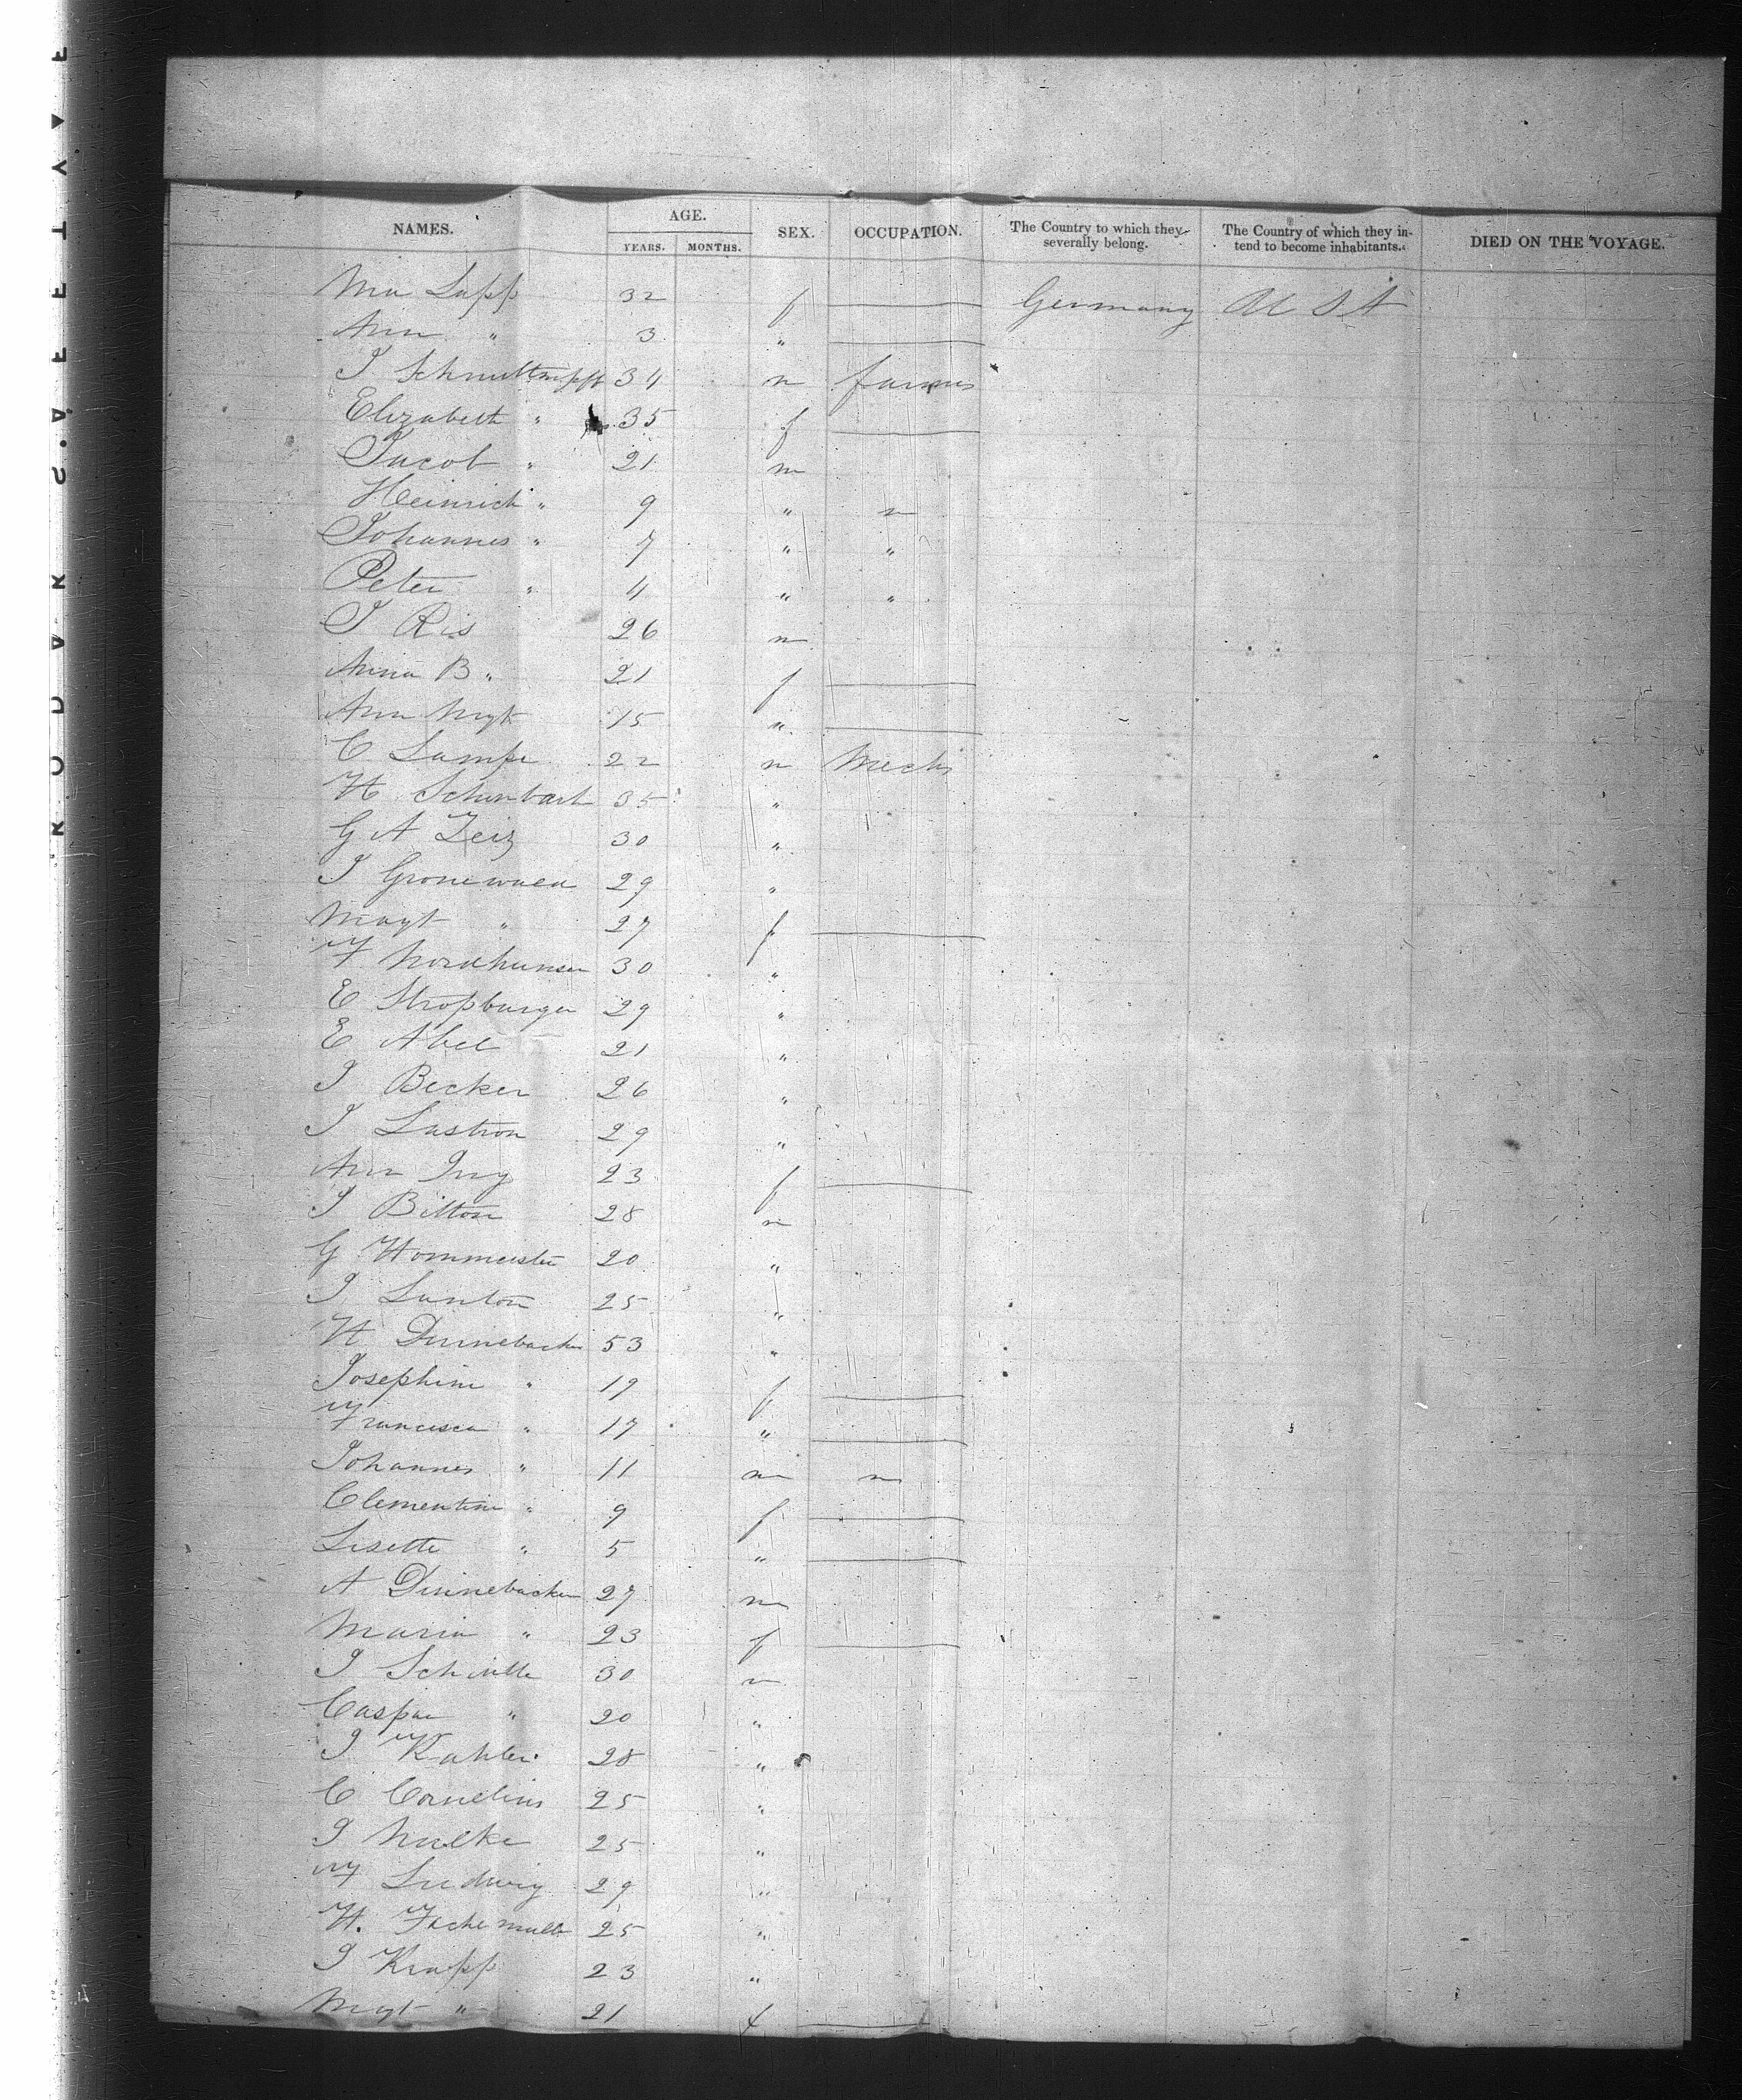 NAMES. AGE. YEARS. MONTHS. SEX. OCCUPATION. The Country to which they severally belong. The Country of which they intend to become inhabitants. DIED ON THE VOYAGE.
Ma Lapp 32 f Germany U S A
Ann " 3 "
J 34 m farmer
Elizabeth " 35 f
Jacob " 21 m
Heinrich " 9 " "
Johannes " 7 " "
Peter " 4 " "
J Ris 26 m
Anna B " 21 f
Ann Mgt 15 "
C Lampe 22 m Mechs
H Schonbach 35 "
G A Zeiz 30 "
J Gronewald 29 "
Magt " 27 f
F Nordhunsen 30 "
E Stroßburger 29 "
E Abel 21 "
J Becker 26 "
J Lastron 29 "
Ann 23 f
J Bitton 28 m
G Hommeister 20 "
J Lanton 25 "
H Dunnebacke 53 "
Josephine " 19 f
Francisca " 17 "
Johannes " 11 m "
Clementine " 9 f
Lisette " 5 "
A Dunnebacken 27 m
Maria " 23 f
J Schulte 30 m
Caspar " 20 "
J Kahler 28 "
C Cornelius 25 "
J Nulke 25 "
F Ludwig 29 "
H. 25 "
J Krapp 23 "
Mgt " 21 f